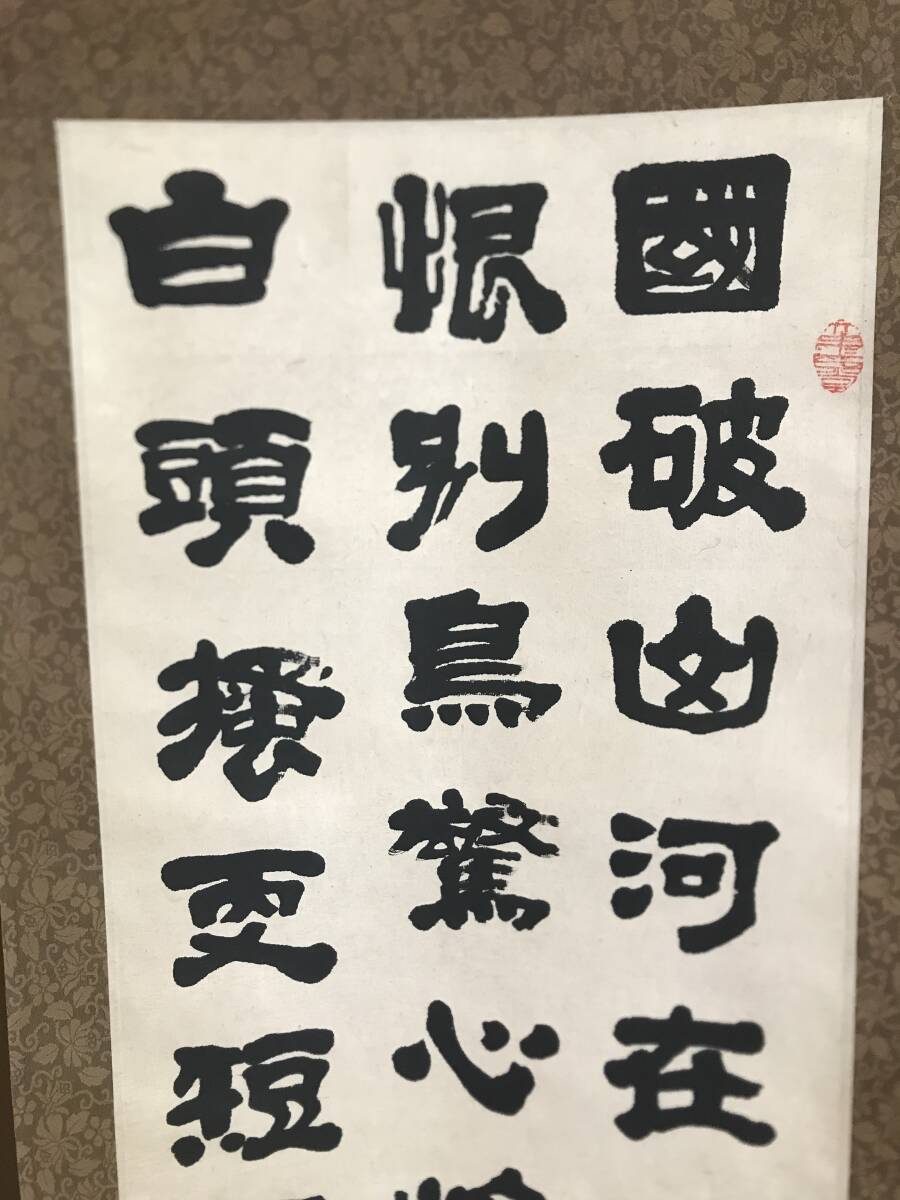 國破山河在
恨別鳥驚心
白頭搔更短